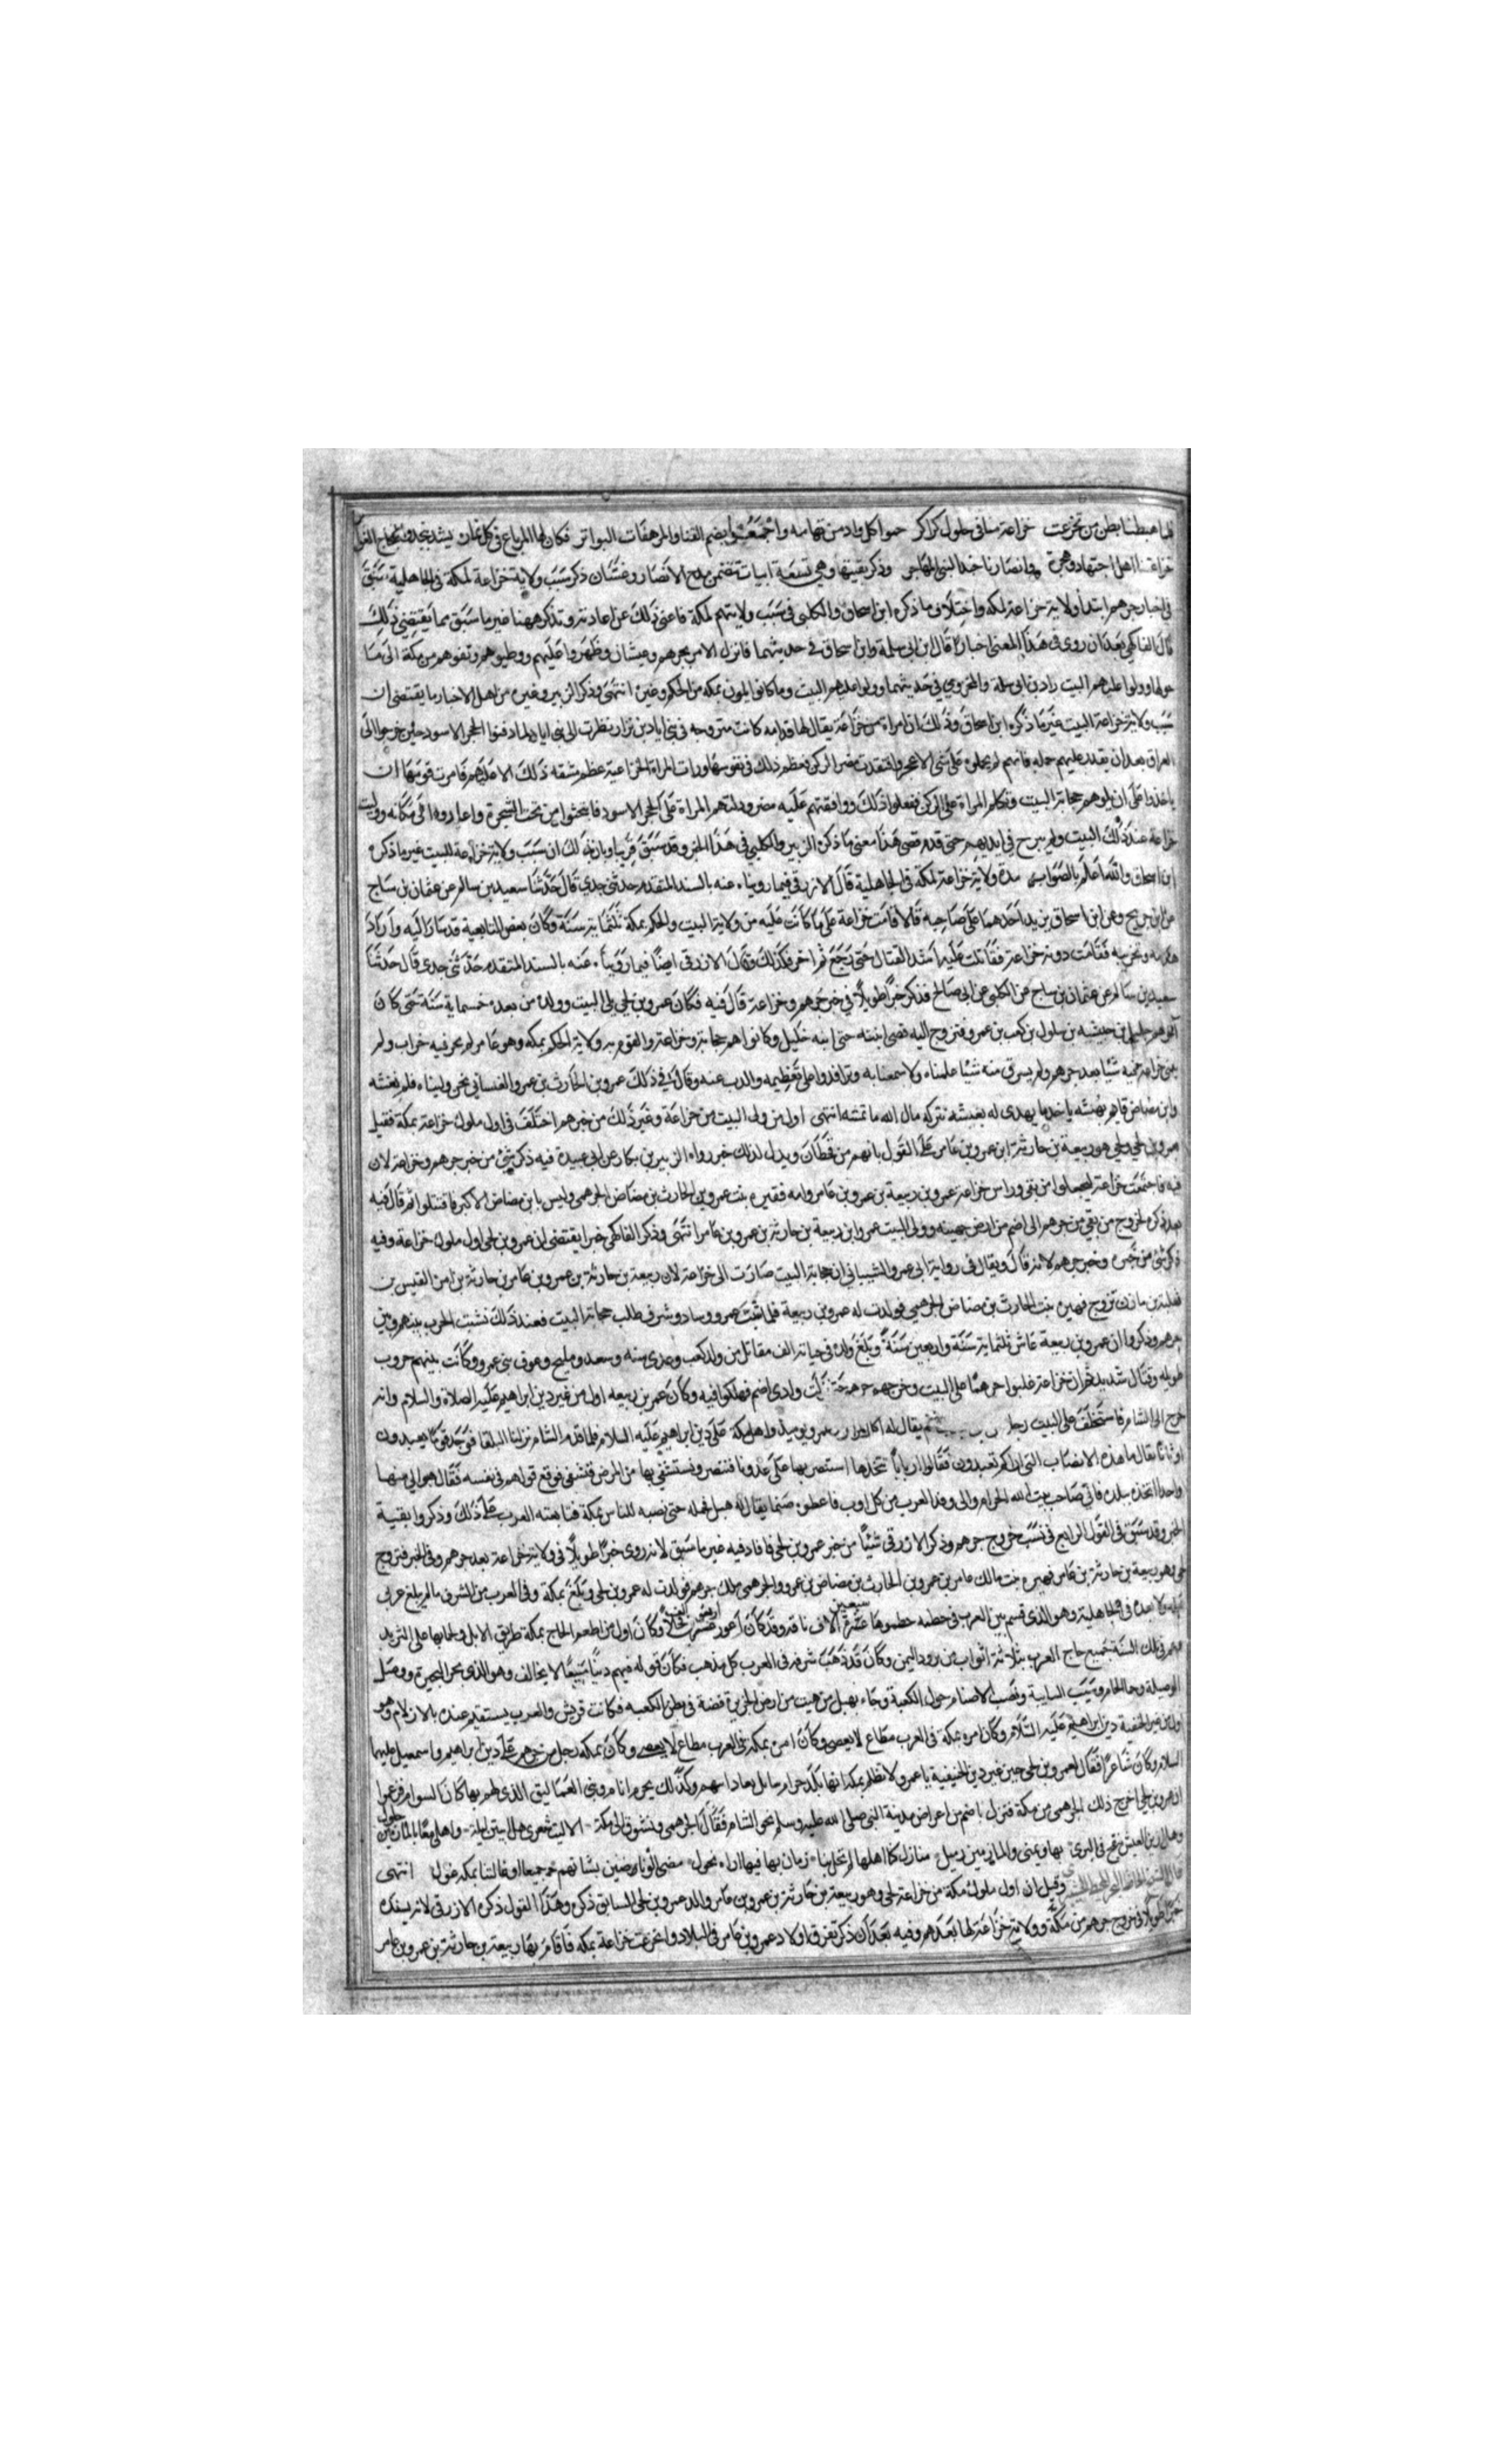 فلما هبطنا بطن مر تخزعت خزاعة منا في حلول كراكر حموا كل واد من تهامة واحتموا بصم القنا والمرهفات البواتر فكان لها المرباع في كل غارة
خزاعتنا اهل اجتهاد وهجرة وانصارنا جند النبي المهاجر وذكر بقيتها وهي تسعة ابيات تتضمن مدح الانصار وغسان ذكر سبب ولاية خزاعة لمكة في الجاهلية سبق
في اخبار جرهم ابتداء ولاية خزاعة لمكه واختلاف ما ذكره ابن اسحاق والكلبى في سبب ولايتهم لمكة فاغنى ذلك عن اعادته ونذكر ههنا غير ما سبق مما يقتضي ذلك
قال الفاكهي بعد ان روى في هذا المعنى اخبارا قال ابن ابي سلمة وابن اسحاق في حديثهما فانزل الامر بجرهم وغبشان وظهروا عليهم ووطيوهم ونفوهم من مكة الى ما
حولها وولوا عليهم البيت زاد بن ابي سلمة والمخزومي في حديثهما وولوا عليهم البيت وما كانوا يلون بمكه من الحكم وغيره انتهى وذكر الزبير وغيره من اهل الاخبار ما يقتضى ان
سبب ولاية خزاعة البيت غير ما ذكره ابن اسحاق وذلك ان امراة من خزاعة يقال لها قدامه كانت متزوجه في بنى اياد بن نزار نظرت الى بنى اياد لما دفنوا الحجر الاسود حين خرجوا الى
العراق بعد ان يقلد عليهم حمله فانهم لم يحملوه على شى الا عجز وافتقدت مضر الركن فعظم ذلك في نفوسها ورات المراة الخزاعية عظم مشقه ذلك الامر عليهم فامرت قومها ان
ياخذوا على ان يولوهم حجابة البيت وتكلم المراة على الركن ففعلوا ذلك ووافقتهم عليه مضر ودلتهم المراة على الحجر الاسود فابتحثوا من تحت الشجرة واعادوه الى مكانه ووليت
خزاعة عند ذلك البيت ولم يبرح في ايديهم حتى قدم قصى هذا معنى ما ذكره الزبير والكلبي في هذا الخبر وقد سبق قريبا وبان بذلك ان سبب ولاية خزاعة للبيت غير ما ذكره
ابن اسحاق والله اعلم بالصواب مدة ولاية خزاعة لمكة في الجاهلية قال الازرقي فيما روينا عنه بالسند المتقدم حدثني جدي قال حدثنا سعيد بن سالم عن عثمان بن ساج
عن ابن جريج وعن ابن اسحاق يزيد احدهما على صاحبه قالا اقامت خزاعة على ما كانت عليه من ولاية البيت والحكم بمكة ثلثماية سنة وكان بعض التبابعة قد سار اليه واراد
هدمه وتخريبه فقامت دونه خزاعة فقاتلت عليه اشد القتال حتى رجع ثم اخر فكذلك وقال الازرقي ايضا فيما روينا عنه بالسند المتقدم حدثني جدى قال حدثنا
سعيد بن سالم عن عثمان بن ساج عن الكلبى عن ابي صالح فذكر خبرا طويلا في خبر جرهم وخزاعة قال فيه فكان عمرو بن لحي يلي البيت وولده من بعده خمسماية سنة حتى كان
آخرهم حليل بن حبشيه بن سلول بن كعب بن عمرو فتزوج اليه قصى ابنته حبى ابنه حليل وكانوا هم حجابة وخزانة والقوم به وولاية الحكم بمكه وهو عامر لم يخر فيه خراب ولم
تبن خزاعة فيه شيا بعد جرهم ولم يسرق منه شيا علمناه ولا سمعنا به وترافدوا على تعظيمه والذب عنه وقال في ذلك عمرو بن الحارث بن عمرو الغساني نحن وليناه فلم نغشه
وابن مضاض قايم يهشه ياخذ ما يهدى له يغشه نترك مال الله ما نمشه انتهى اول من ولى البيت من خزاعة وغير ذلك من خبرهم اختلف في اول ملوك خزاعة بمكة فقيل
عمرو بن لحي ولحي هو ربيعة بن حارثة ابن عمرو بن عامر على القول بانهم من قحطان ويدل لذلك خبر رواه الزبير بن بكار عن ابي عبيدة فيه ذكر شى من خبر جرهم وخزاعة لان
فيه فاجتمعت خزاعة ليجلوا من بقي وراس خزاعة عمرو بن ربيعة بن عمرو بن عامر وامه فهيرة بنت عمرو بن الحارث بن مضاض الجرهمي وليس بابن مضاض الاكبر فاقتتلوا ثم قال فيه
بعد ذكره لخروج من بقي من جرهم الى اضم من ارض جهينه وولى البيت عمرو ابن ربيعة بن حارثة بن عمرو بن عامر انتهى وذكر الفاكهي خبرا يقتضى ان عمرو بن لحى اول ملوك خزاعة وفيه
ذكر شى من خبره وخبر جرهم لانه قال ويقال في رواية ابى عمرو الشيباني ان حجابة البيت صارت الى خزاعة لان ربيعة بن حارثة بن عمرو بن عامر بن حارثة بن امرئ القيس بن
ثعلبة بن مازن تزوج فهيره بنت الحارث بن مضاض الجرهمي فولدت له عمرو بن ربيعة فلما شب عمرو وساد وشرف طلب حجابة البيت فعند ذلك نشبت الحرب بينهم وبين
جرهم وذكروا ان عمرو بن ربيعة عاش ثلثماية سنة واربعين سنة وبلغ ولده في حياته الف مقاتل من ولد كعب وعدى منه وسعد ومليح وعوف بنى عمرو وكانت بينهم حروب
طويله وقتال شديد ثم ان خزاعة غلبوا جرهما على البيت وخرجت جرهم حتى نزلت وادى اضم فهلكوا فيه وكان عمرو بن ربيعه اول من غير دين ابراهيم عليه الصلاة والسلام وانه
خرج الى الشام فاستخلف على البيت رجلا يقال له وعمرو يوميذ واهل مكة على دين ابراهيم عليه السلام فلما قدم الشام نزل بنا البلقا فوجد قوما يعبدون
اوثانا فقال ما هذه الانصاب التى اراكم تعبدون فقالوا اربابا نتخذها استنصر بها على عدونا فننصر ونستشفي بها من المرض فنشفى فوقع قولهم في نفسه فقال هبوا لي منها
واحدا اتخذه ببلدي فاني صاحب بيت الله الحرام والى وفد العرب من كل اوب فاعطوه صنما يقال له هبل فحمله حتى نصبه للناس بمكة فتابعته العرب على ذلك وذكروا بقية
الخبر وقد سبق في القول الرابع في سبب خروج جرهم وذكر الازرقى شيئا من خبر عمرو بن لحى فافاد فيه غير ما سبق لانه روى خبرا طويلا في ولاية خزاعة بعد جرهم وفي الخبر فتزوج
لحى وهو ربيعة بن حارثة بن عامر فهيره بنت مالك عامر بن عمرو بن الحارث بن مضاض بن عمرو الجرهمي ملك جرهم فولدت له عمرو بن لحى وبلغ بمكة وفي العرب من الشرف ما لم يبلغ عربى
قبله ولا بعده في الجاهلية وهو الذى قسم بين العرب في حطمه حطموها عشرة الاف ناقه وقد كان اعور عشرين فحلا وكان اول من اطعم الحاج بمكة طريق الابل ولحمانها على الثريد
وعم في تلك السنة جميع حاج العرب بثلاثة اثواب من برود اليمن وكان قد ذهب شرفه في العرب كل مذهب فكان قوله فيهم دينا متبعا لا يخالف وهو الذى بحر البحيرة ووصل
الوصيلة وحما الحام وسيب السايبة ونصب الاصنام حول الكعبة وجاء بهبل من هيت من ارض الجزيرة فنصبه في بطن الكعبه فكانت قريش والعرب يستقسم عنده بالازلام وهو
اول من غير الحنيفية دين ابراهيم عليه السلام وكان امره بمكة في العرب مطاع لا يعصى وكان امن بمكه في العرب مطاع لا يعصى وكان بمكه رجل من جرهم على دين ابراهيم واسمعيل عليهما
السلام وكان شاعرا فقال لعمرو بن لحى حين غير دين الحنيفية يا عمرو لا تظلم بمكه انها بلد حرام سايل بعاد اين هم وكذلك يحترم الانام وبني العماليق الذى لهم بها كان السوام فزعموا
ان عمرو بن لحي اخرج ذلك الجرهمى من مكة فنزل باضم من اعراض مدينة النبى صلى الله عليه وسلم نحو الشام فقال الجرهمي وتشوق الى مكة الا ليت شعرى هل ابيتن ليلة واهلى معا بالمازمين حلول
وهل ارين العيش تنفح في البرى بها ومنى والمازمين ذميل منازل كنا اهلها لم تحل بنا زمان بها فيها اراه تحول مضى اولونا راضين بشانهم جميعا وغالتنا بمكه غول انتهى
وقيل ان اول ملوك مكة من خزاعة لحى وهو ربيعة بن حارثة بن عمرو بن عامر والد عمرو بن لحى السابق ذكره وهذا القول ذكره الازرقى لانه بسنده
خبرا طويلا في خروج جرهم من مكة وولاية خزاعة لها بعدهم وفيه بعد ان ذكر تفرق اولاد عمرو بن عامر في البلاد وانخزعت خزاعة بمكه فاقام بها ربيعة بن حارثة بن عمرو بن عامر